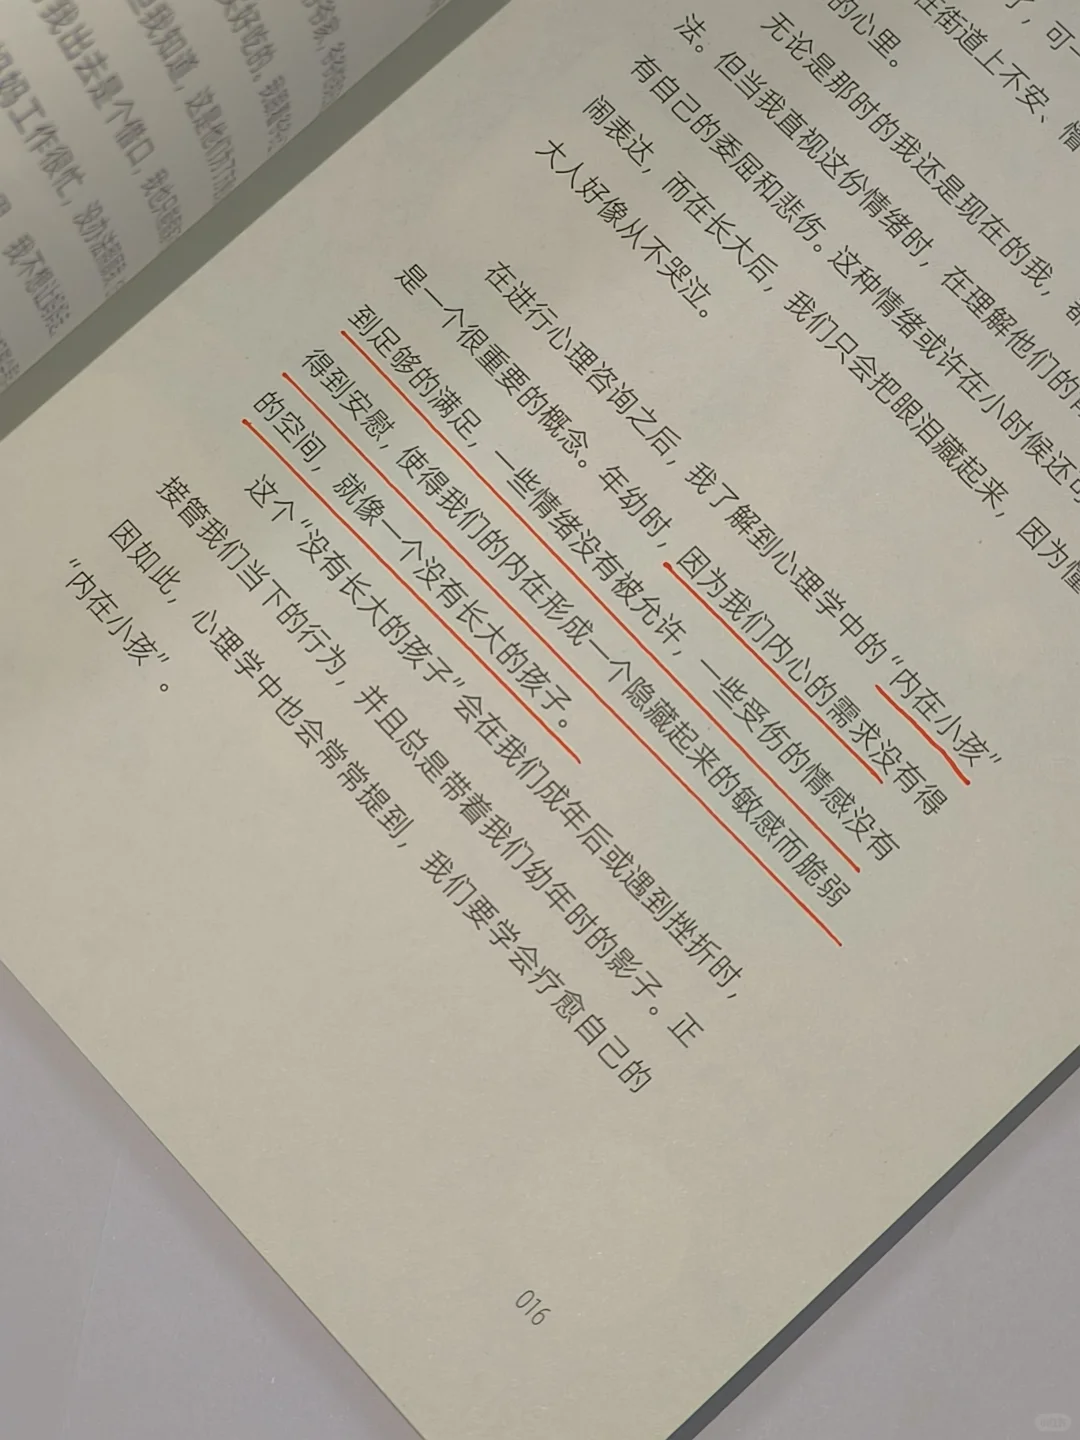 我出去是个借口,
妈妈工作很忙,
了,可一
在街道上不安、惜
的心里。
无论是那时的我还是现在的我,都
法。但当我直视这份情绪时,在理解他们的同
有自己的委屈和悲伤。这种情绪或许在小时候还可
闹表达,而在长大后,我们只会把眼泪藏起来,因为懂
大人好像从不哭泣。
在进行心理咨询之后,我了解到心理学中的“内在小孩”
是一个很重要的概念。年幼时,因为我们内心的需求没有得
到足够的满足,一些情绪没有被允许,一些受伤的情感没有
得到安慰,使得我们的内在形成一个隐藏起来的敏感而脆弱
的空间,就像一个没有长大的孩子。
这个“没有长大的孩子”会在我们成年后或遇到挫折时,
接管我们当下的行为,并且总是带着我们幼年时的影子。正
因如此,心理学中也会常常提到,我们要学会疗愈自己的
“内在小孩”。
016